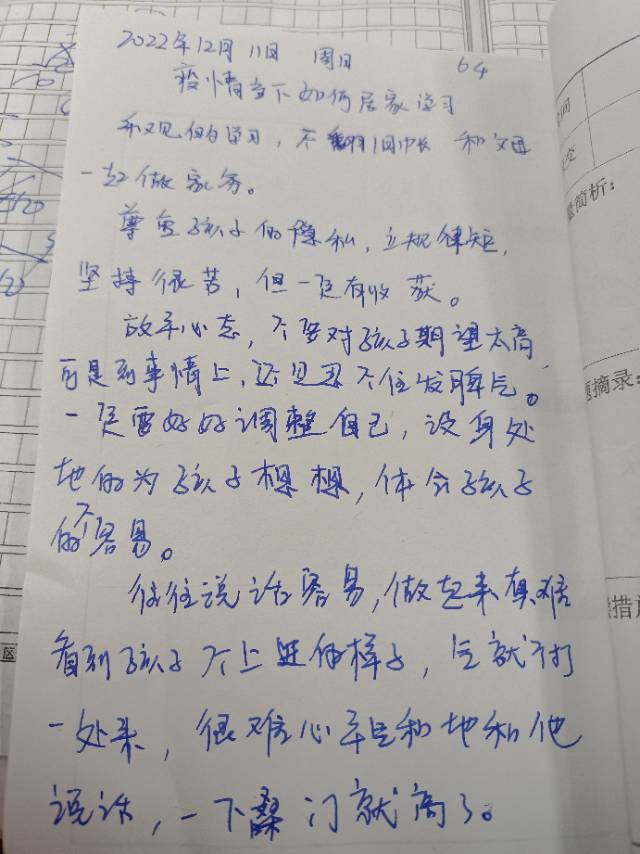 2022年12月11日 周日 64
疫情当下如何居家学习
和父母
一起做家务。
尊重孩子的隐私，立规律矩，
坚持很苦，但一定有收获。
放平心态，不要对孩子期望太高，
可是到事情上，还是忍不住发脾气。
一定要好好调整自己，设身处
地的为孩子想想，体会孩子
的不容易。
往往说话容易，做起来真难
看到孩子不上进的样子，气就不打
一处来，很难心平气和地和他
说话，一下嗓门就高了。
简析：
题摘录：
措施
区